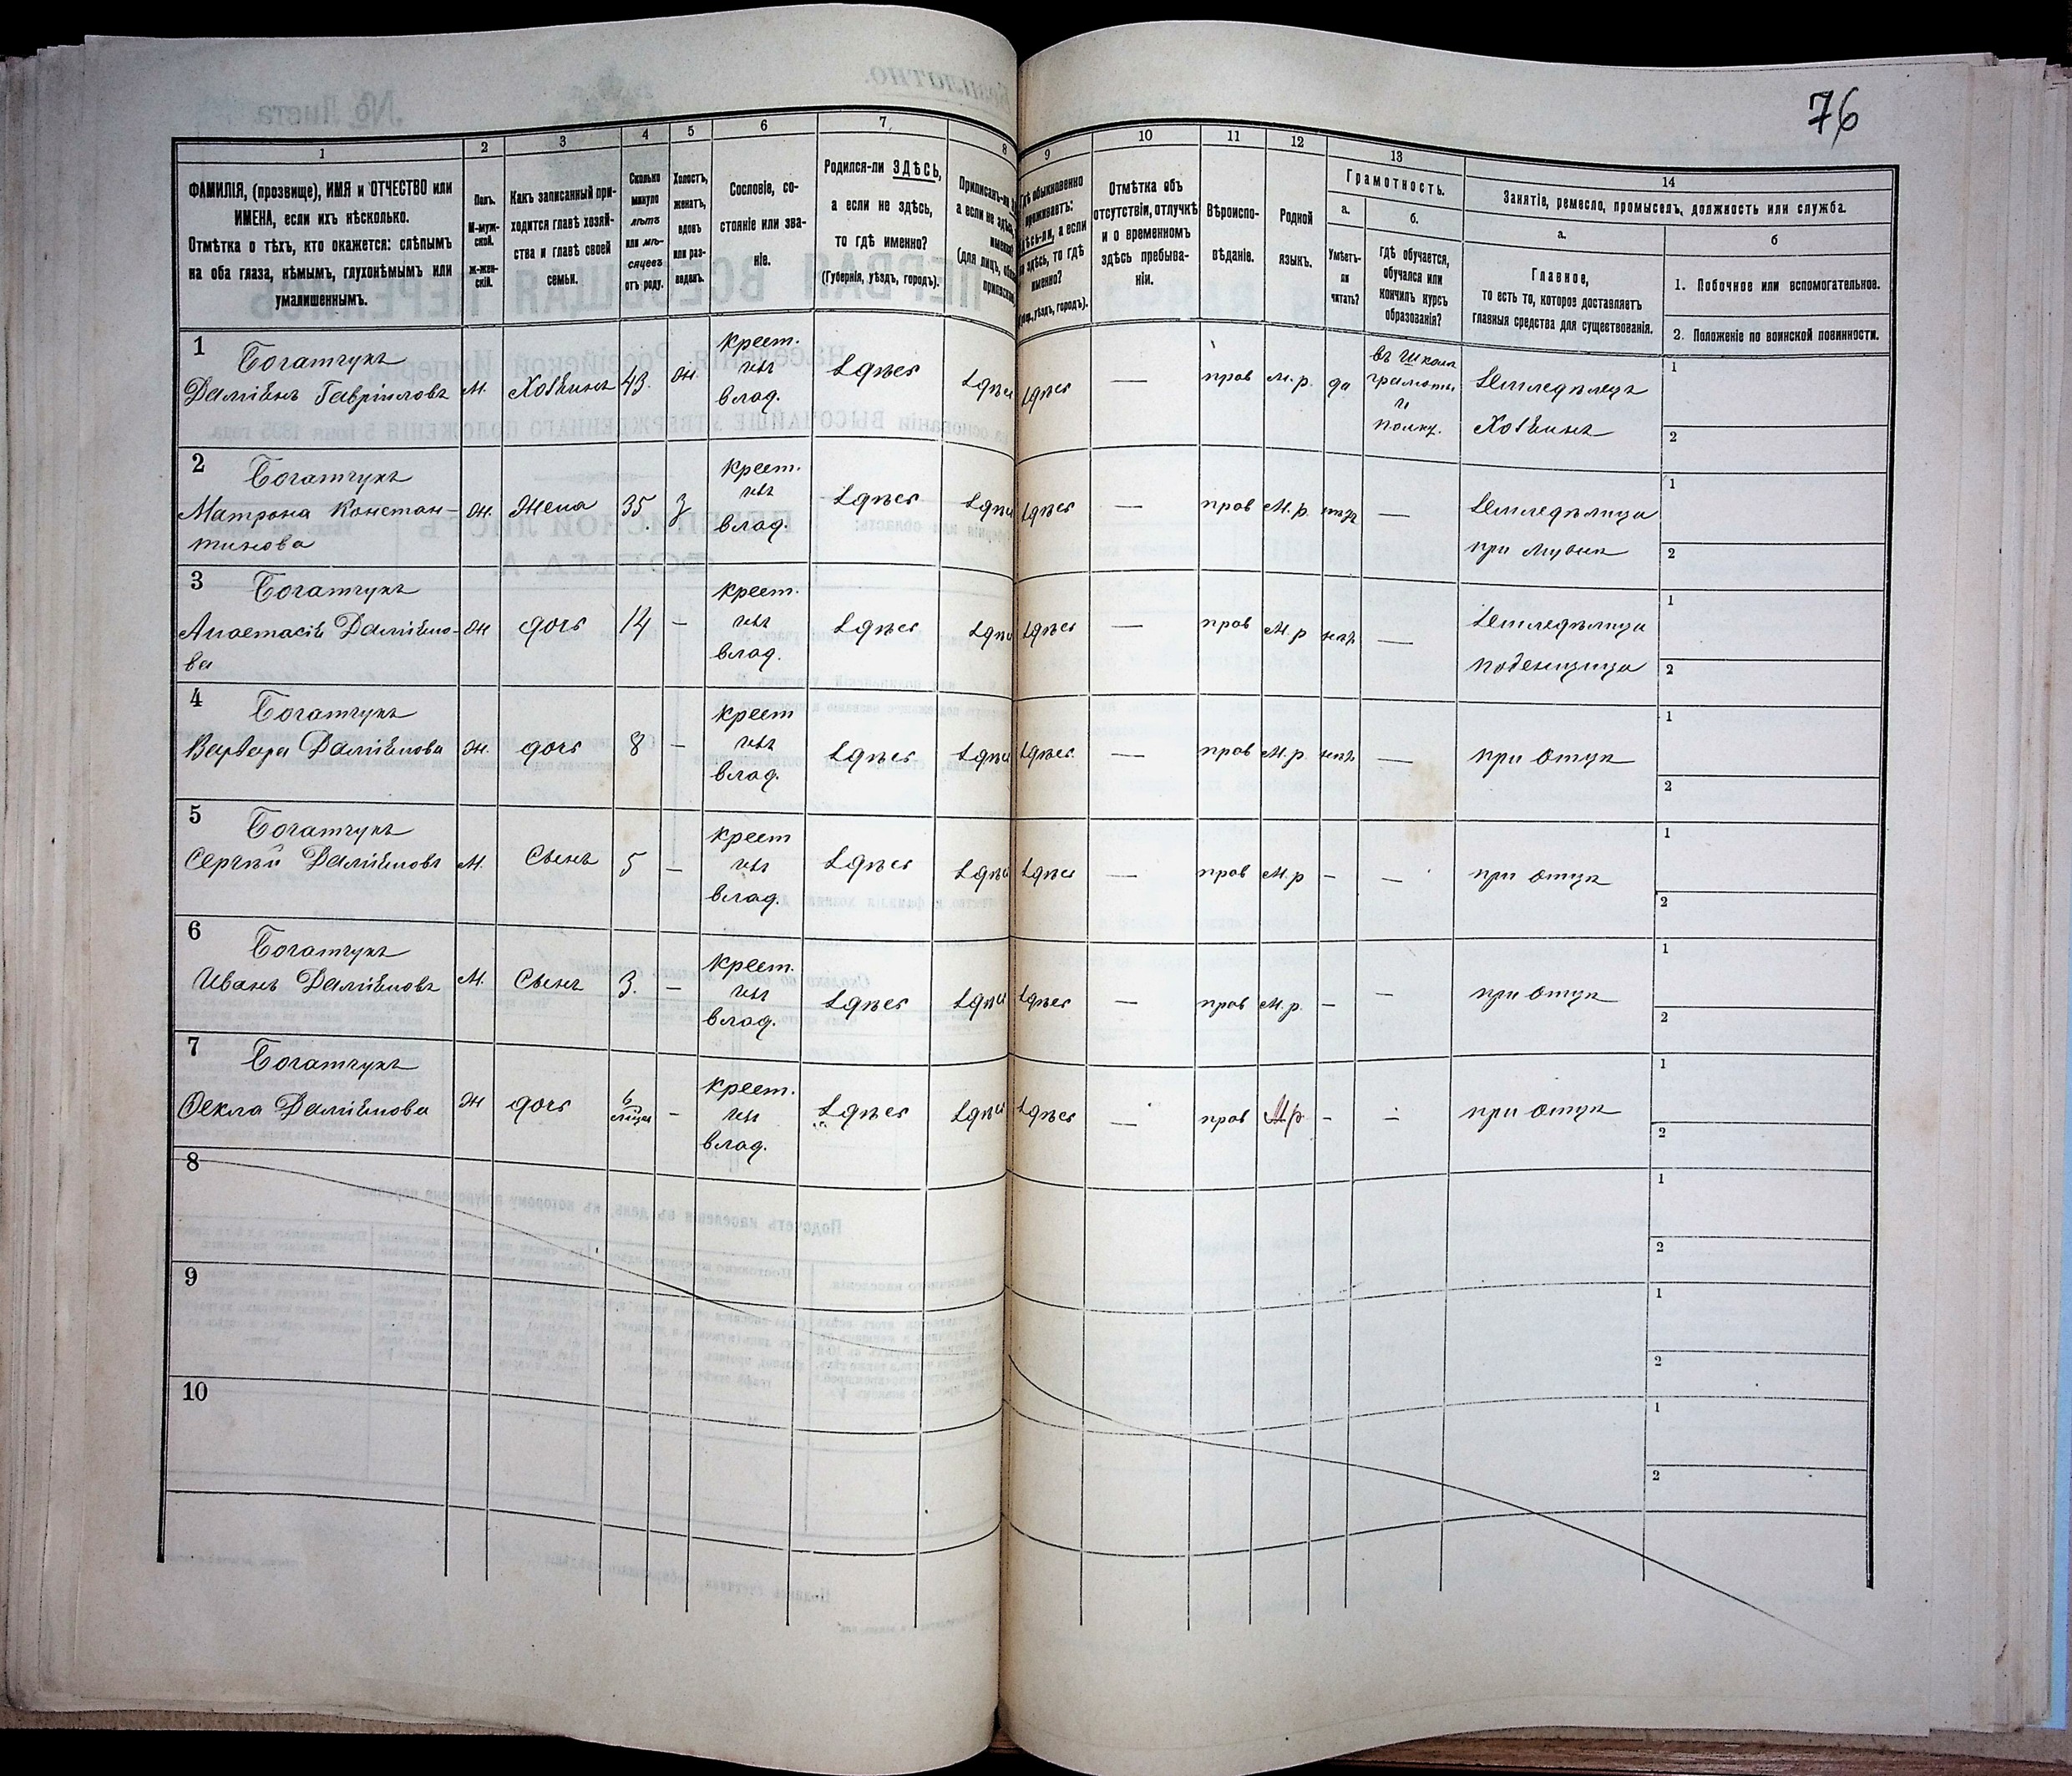 76
1
2
3
4
5
6
7
8
9
10
11
12
13
14
ФАМИЛІЯ, (прозвище), ИМЯ и ОТЧЕСТВО или
ИМЕНА, если ихъ нѣсколько.
Отмѣтка о тѣхъ, кто окажется: слѣпымъ
на оба глаза, нѣмымъ, глухонѣмымъ или
умалишеннымъ.
Полъ.
М-муж-
ской.
Ж-жен-
скій.
Какъ записанный при-
ходится главѣ хозяй-
ства и главѣ своей
семьи.
Сколько
минуло
лѣтъ
или мѣ-
сяцевъ
отъ роду.
Холостъ,
женатъ,
вдовъ
или раз-
веденъ.
Сословіе, со-
стояніе или зва-
ніе.
Родился-ли ЗДѢСЬ,
а если не здѣсь,
то гдѣ именно?
(Губернія, уѣздъ, городъ).
обыкновенно
проживаетъ:
а если
здѣсь, то гдѣ
именно?
уѣздъ, городъ).
Отмѣтка объ
отсутствіи, отлучкѣ
и о временномъ
здѣсь пребыва-
ніи.
Вѣроиспо-
вѣданіе.
Родной
языкъ.
Грамотность.
а.
Умѣетъ-
ли
читать?
б.
гдѣ обучается,
обучался или
кончилъ курсъ
образованія?
Занятіе, ремесло, промыселъ, должность или служба.
а.
Главное,
то есть то, которое доставляетъ
главныя средства для существованія.
б
1. Побочное или вспомогательное.
2. Положеніе по воинской повинности.
1
Богатчукъ
Даміанъ Гавріиловъ М. Хозяинъ 43. ж. крест. изъ влад. Здѣсь Здѣсь Здѣсь — прав М.р. да въ школѣ грамоты и полку. Земледѣлецъ Хозяинъ
1
2
2
Богатчукъ
Матрона Констан-
тинова
Ж. Жена 35 з крест. изъ влад. Здѣсь Здѣсь Здѣсь — прав М.р. нѣтъ — Земледѣлица при мужѣ
1
2
3
Богатчукъ
Анастасія Даміано-
ва
Ж дочь 14 - крест. изъ влад. Здѣсь Здѣсь Здѣсь — прав М.р нѣтъ — Земледѣлица поденщица
1
2
4
Богатчукъ
Варвара Даміанова Ж. дочь 8 - крест изъ влад. Здѣсь Здѣсь Здѣсь — прав М.р. нѣтъ — при отцѣ
1
2
5
Богатчукъ
Сергѣй Даміановъ М. Сынъ 5 — крест изъ влад. Здѣсь Здѣсь Здѣсь — прав М.р - — при отцѣ
1
2
6
Богатчукъ
Иванъ Даміановъ М. Сынъ 3. - крест. изъ влад. Здѣсь Здѣсь Здѣсь — прав М.р. - — при отцѣ
1
2
7
Богатчукъ
Ѳекла Даміанова Ж дочь 6 мѣсяц - крест. изъ влад. Здѣсь Здѣсь Здѣсь — прав М.р - — при отцѣ
1
2
8
1
2
9
1
2
10
1
2